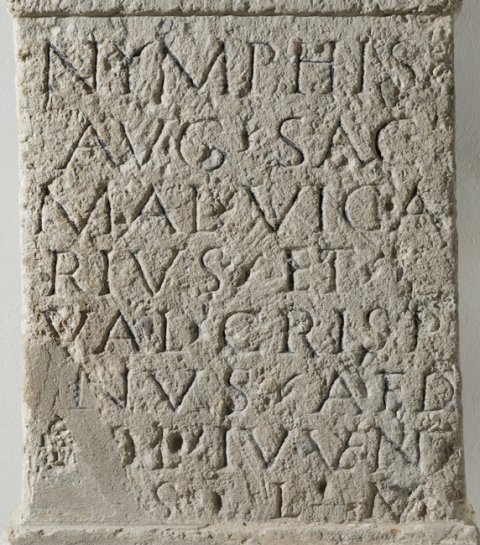 NYMPHIS
AVG SAC
MAL VICA
RIVS ET
VAL CRISP
NVS AED
II IVVEN
S L M